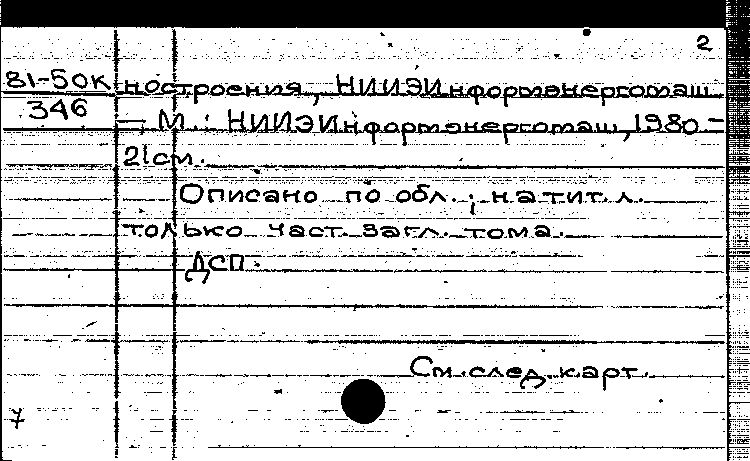 2
81-50К ностроения, НИИЭИнформэнергомаш
346 —, М.: НИИЭИнформэнергомаш, 1980 -
21см.
Описано по обл.; на тит. л.
только част. загл. тома.
ДСП.
См. след. карт.
7